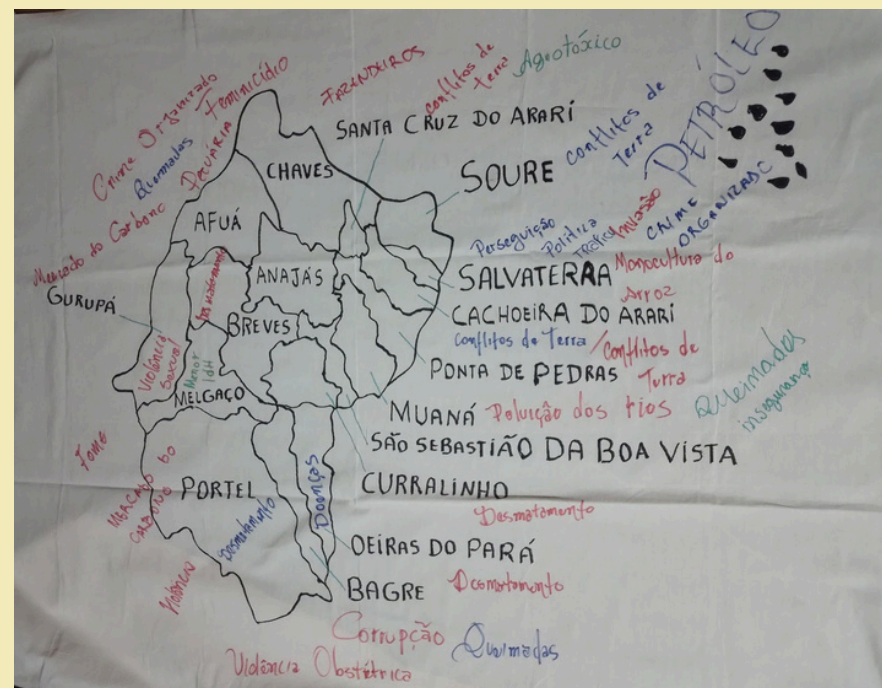 Crime Organizado
Feminicídio
FAZENDEIROS
conflitos de
terra
Agrotóxico
PETRÓLEO
Queimadas
PECUÁRIA
SANTA CRUZ DO ARARÍ
CHAVES
SOURE
conflitos de
Terra
Mercado do Carbono
AFUÁ
Perseguição
Política
Tráfico
Invasão
CRIME
ORGANIZADO
GURUPÁ
Desmatamento
ANAJÁS
SALVATERRA
Monocultura do
Arroz
CACHOEIRA DO ARARÍ
BREVES
Conflitos de Terra / Conflitos de
Terra
Violência
Sexual
Menor
IdH
PONTA DE PEDRAS
Queimadas
insegurança
MELGAÇO
MUANÁ
Poluição dos rios
Fome
SÃO SEBASTIÃO DA BOA VISTA
MERCADO DO
CARBONO
PORTEL
Desmatamento
Doenças
CURRALINHO
Desmatamento
OEIRAS DO PARÁ
Violência
BAGRE
Desmatamento
Corrupção
Queimadas
Violência Obstétrica